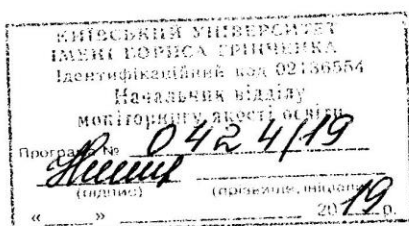 КИЇВСЬКИЙ УНІВЕРСИТЕТ
ІМЕНІ БОРИСА ГРІНЧЕНКА
Ідентифікаційний код 02136554
Начальник відділу
моніторингу якості освіти
Програма № 0424/19
(підпис) (прізвище, ініціали)
« » 2019 р.